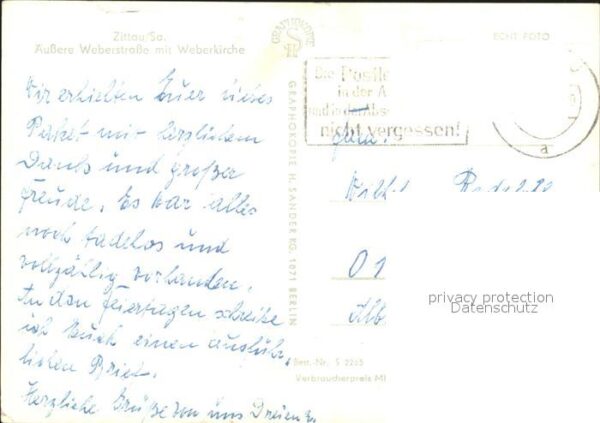 Zittau/Sa.
Äußere Weberstraße mit Weberkirche
GRAPHOKOPIE
ECHT FOTO
Die Postle
in der A
und in der Abs
nicht vergessen!
a
Wir erhielten Euer liebes
Paket mit herzlichem
Dank und großer
Freude. Es war alles
noch tadellos und
vollzählig vorhanden.
An den Feiertagen schreibe
ich Euch einen ausführ-
lichen Brief.
Herzliche Grüße von uns Dreien
GRAPHOKOPIE H. SANDER KG. 1071 BERLIN
01
privacy protection
Datenschutz
Best.-Nr. S 2265
Verbraucherpreis M